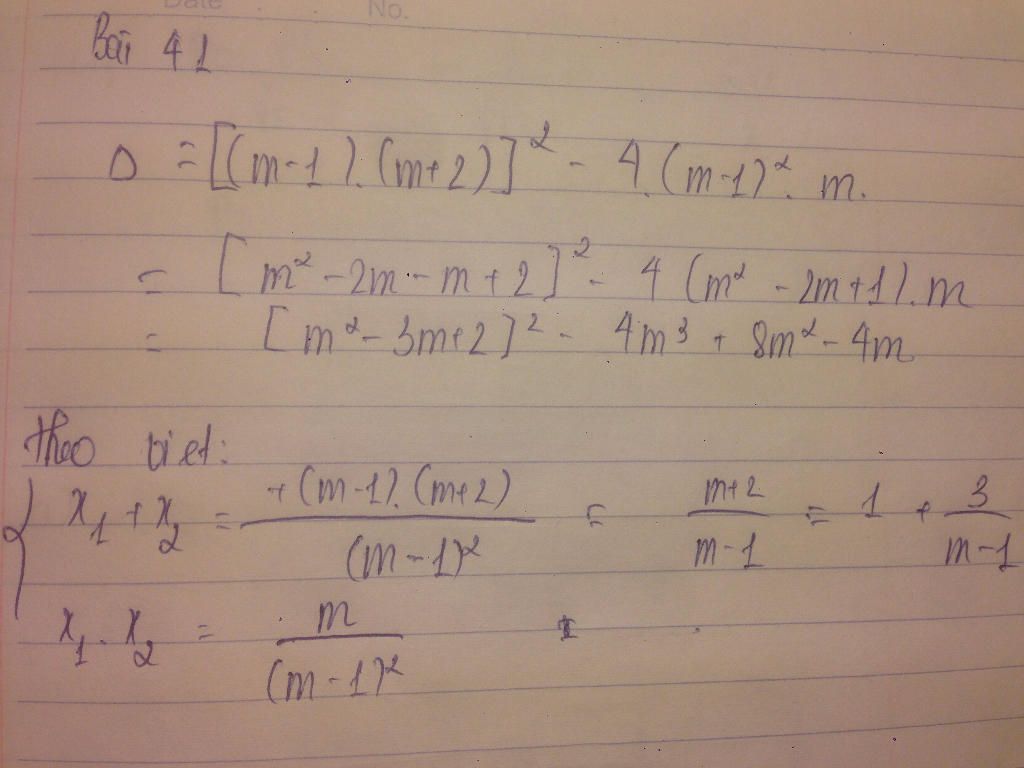 Date No.
Bài 41
Δ = [(m-1).(m+2)]² - 4.(m-1)².m.
= [m² - 2m - m + 2]² - 4(m² - 2m + 1).m
= [m² - 3m + 2]² - 4m³ + 8m² - 4m
Theo viet:
{ x₁ + x₂ = +(m-1).(m+2) / (m-1)² = m+2 / m-1 = 1 + 3 / m-1
x₁ . x₂ = m / (m-1)²